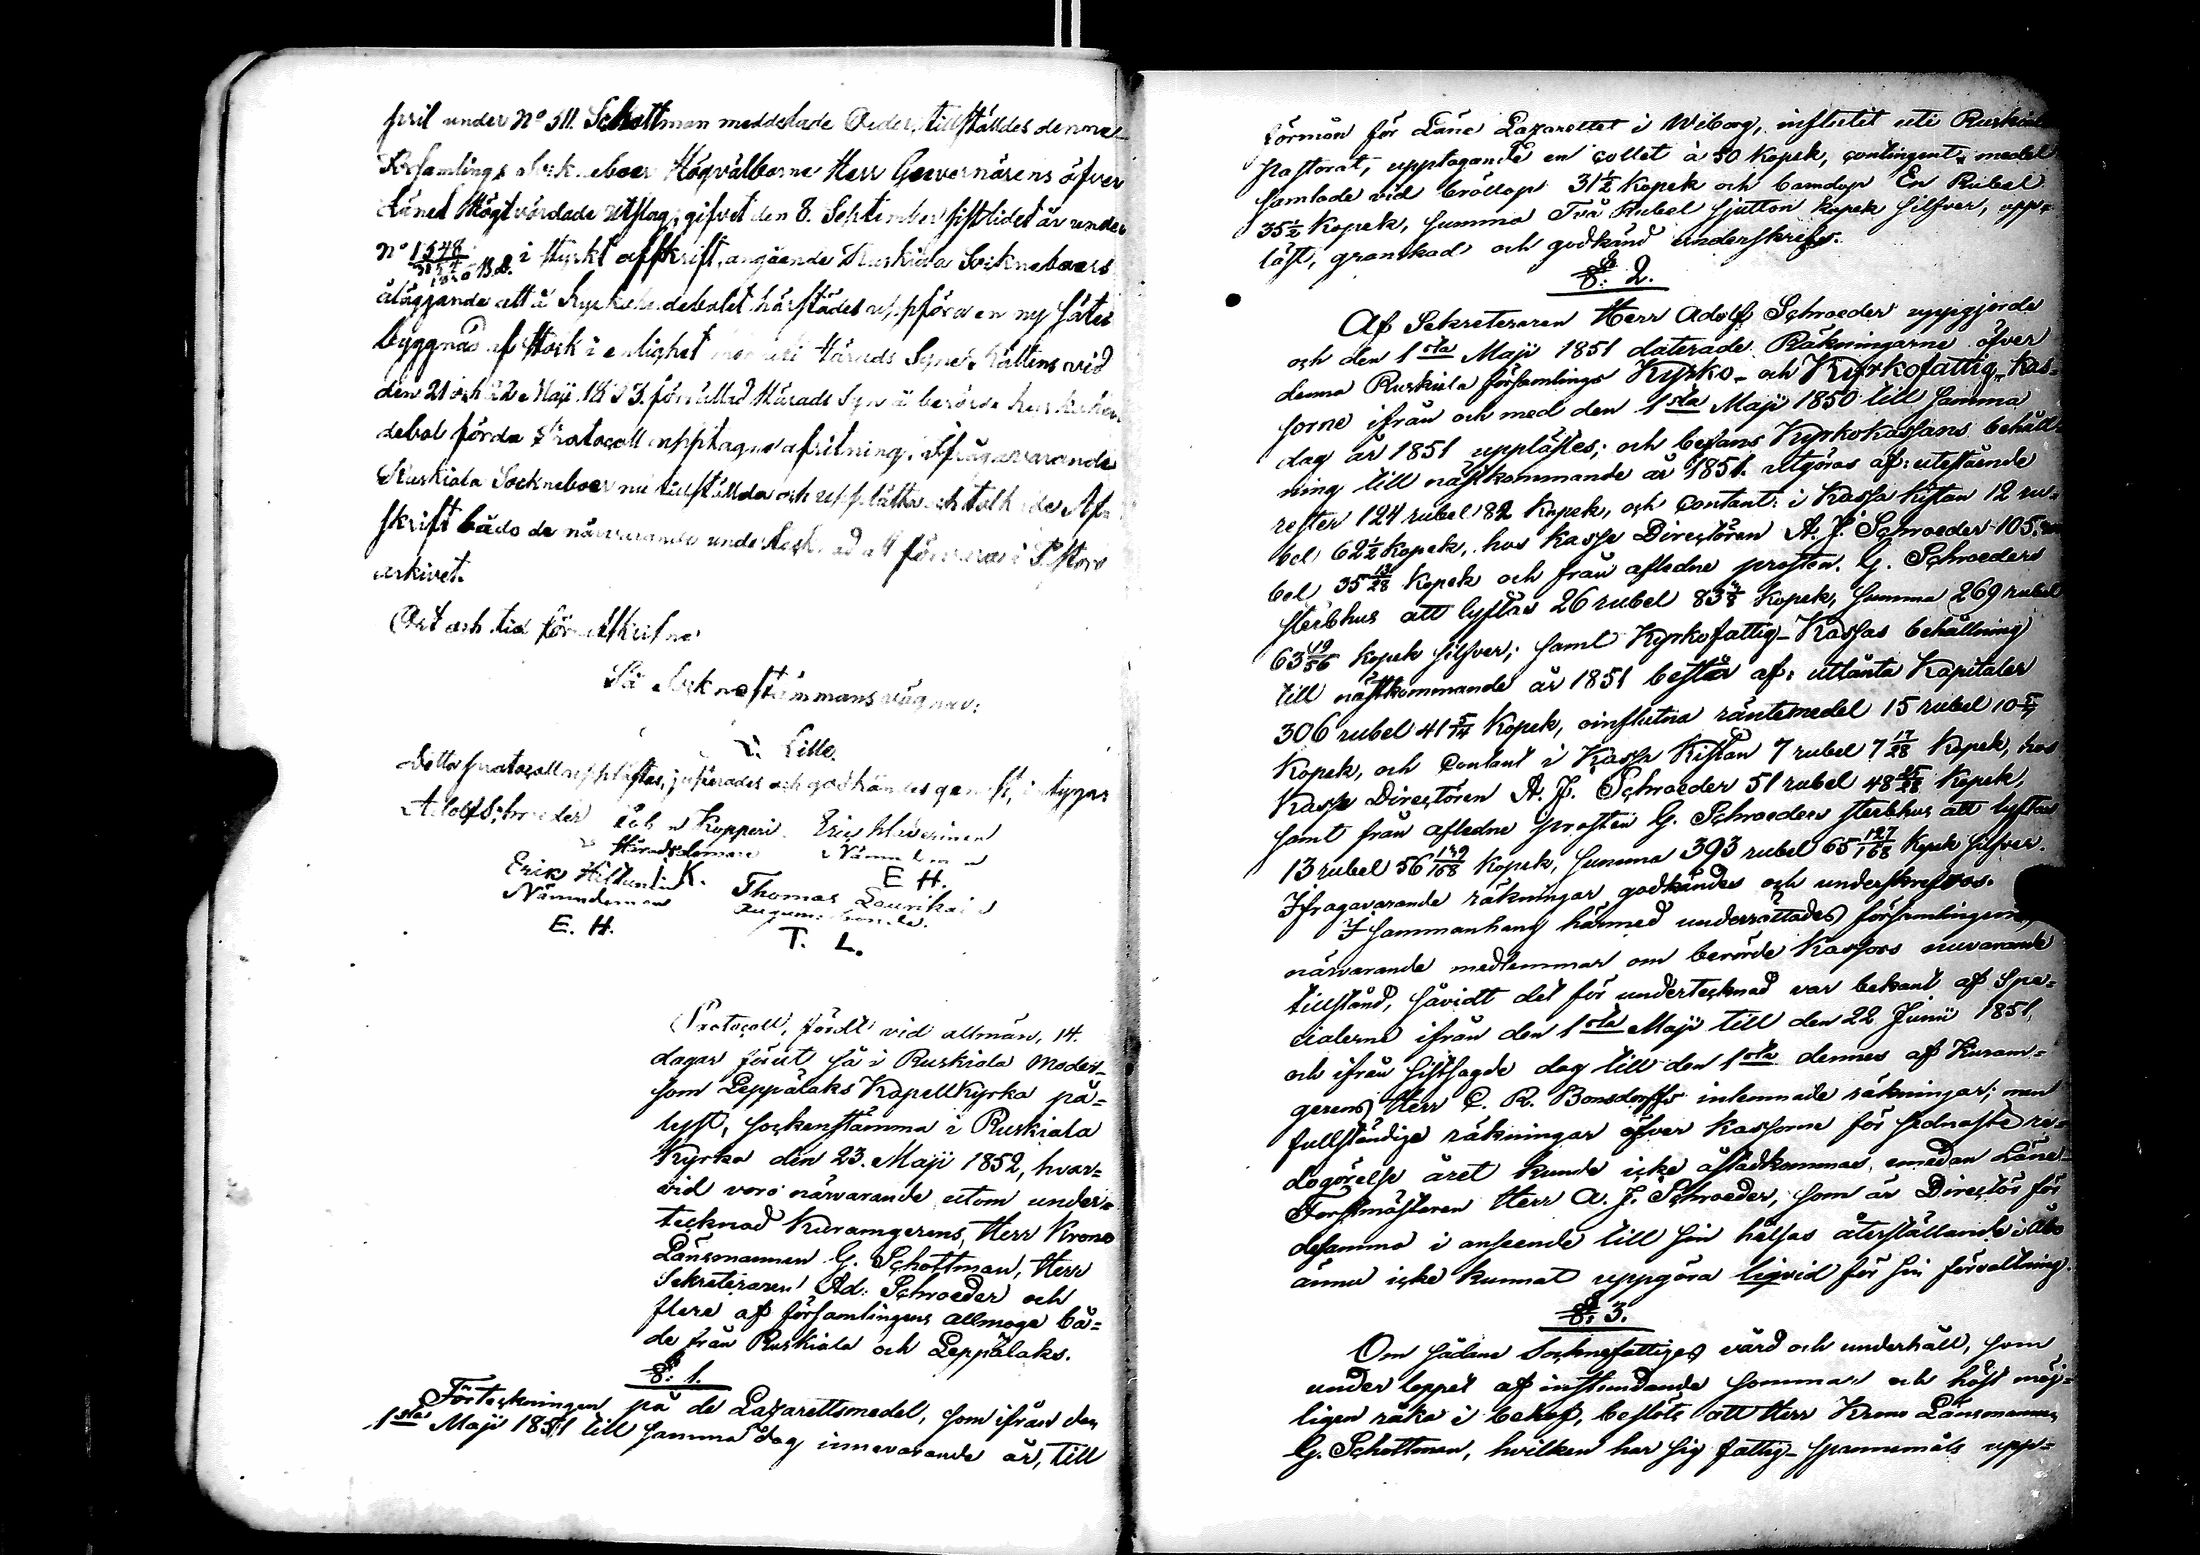 pril under No 511. Schottman meddelade Order, tillställdes denna
Församlings Sockneboer Högvälborne Herr Gouvernörens öfver
Länet Högtvördade utslag, gifvet den 8. September sistlidet år under
No 1548 i styrkt afskrift, angående Ruskiala Sockneboers
åläggande att å Kyrkoherdebolet härstädes uppföra en ny sätes
byggnad af stock i enlighet med uti Härads Syne Rättens vid
den 21 och 22 Maji förrättad Härads Syn å berörde kyrkoher
debol förda Protocoll upptagna afritning. Ifrågavarande
Ruskiala Socknebor nu tillställda och upplästa och tolkade Af-
skrift både de närvarande undertecknad att förvaras i Pastors
arkivet.
Ort och tid förutskrifne
På Socknestämmans vägnar:
Lille.
Detta protocoll upplästes, justerades och godkändes genast, intygar
Adolf Schroeder Kopperi Eric Hiverinen
Häradsdomare Nämndeman
Erik Hiltunen K. E H.
Nämndeman Thomas Laurikai
E. H. bonde.
T. L.
Protocoll, fördt vid allmän, 14.
dagar förut så i Ruskiala Moder-
som Leppälaks Kapellkyrka på=
lyst, sockenstämma i Ruskiala
Kyrka den 23. Maji 1852, hvar=
vid voro närvarande utom under=
tecknad Kuramgerens, Herr Krono
Länsmannen G. Schottman, Herr
Sekreteraren Ad: Schroeder och
flere af församlingens allmoge bå=
de från Ruskiala och Leppälaks.
§: 1.
Förteckningen på de Lazarettsmedel, som ifrån den
1sta Maji 1851 till samma dag innevarande år, till
förmån för Läns Lazarettet i Wiborg, influtit uti Ruskiala
Pastorat, upptagande en collet à 50 Kopek, contingent-medel
samlade vid bröllop 31½ Kopek och barndop En Rubel
35½ Kopek, summa Två Rubel sjutton kopek silfver, upp=
läst, granskad och godkänd underskrefs.
§: 2.
Af Sekreteraren Herr Adolf Schroeder uppgjorde
och den 1sta Maji 1851 daterade Räkningarne öfver
denna Ruskiala församlings Kyrko- och Kyrkofattig-Kas-
sorne ifrån och med den 1sta Maji 1850 till samma
dag år 1851 upplästes; och befans Kyrkokassans behåll-
ning till nästkommande år 1851. utgöras af: utestående
rester 124 rubel 82 Kopek, och Contant: i Kassa Kistan 12 ru-
bel 62½ Kopek, hos Kassa Directören A. J. Schroeder 105. ru
bel 35 13/28 Kopek och från aflidne prosten G. Schroeders
sterbhus att lyftas 26 rubel 83 Kopek, summa 269 rubel
63 19/56 Kopek silfver; samt Kyrkofattig-Kassas behållning
till nästkommande år 1851 består af: utlånta Kapitaler
306 rubel 41 5/14 Kopek, oinflutna räntemedel 15 rubel 10
Kopek, och Contant i Kassa Kistan 7 rubel 7 17/28 Kopek, hos
Kassa Directören A. J. Schroeder 51 rubel 48 Kopek,
samt från aflidne prosten G. Schroeders sterbhus att lyftas
13 rubel 56 139/168 Kopek, summa 393 rubel 65 127/168 Kopek silfver.
Ifragavarande räkningar godkändes och underskrefvos.
I sammanhang härmed underrättades församlingens
närvarande medlemmar om berörde Kassors nuvarande
tillstånd, såvidt det för undertecknad var bekant af Spe=
cialerne ifrån den 1sta Maji till den 22 Junii 1851,
och ifrån sistsagde dag till den 1sta dennes af Kuram=
gerens Herr C. R. Bonsdorffs inlemnade räkningar; men
fullständiga räkningar öfver kassorne för sednaste re-
dogörelse året kunde icke åstadkommas, emedan Läns-
Forstmästaren Herr A. J. Schroeder, som är Directör för
desamma i anseende till sin hälsas återställande i Åbo
ännu icke kunnat uppgöra liqvid för sin förvaltning.
§: 3.
Om sådane Socknefattiges vård och underhåll, som
under loppet af instundande sommar och höst möj=
ligen råka i behof, beslöts att Herr Krono Länsmannen
G. Schottman, hvilken har sig fattig-spannemåls upp=